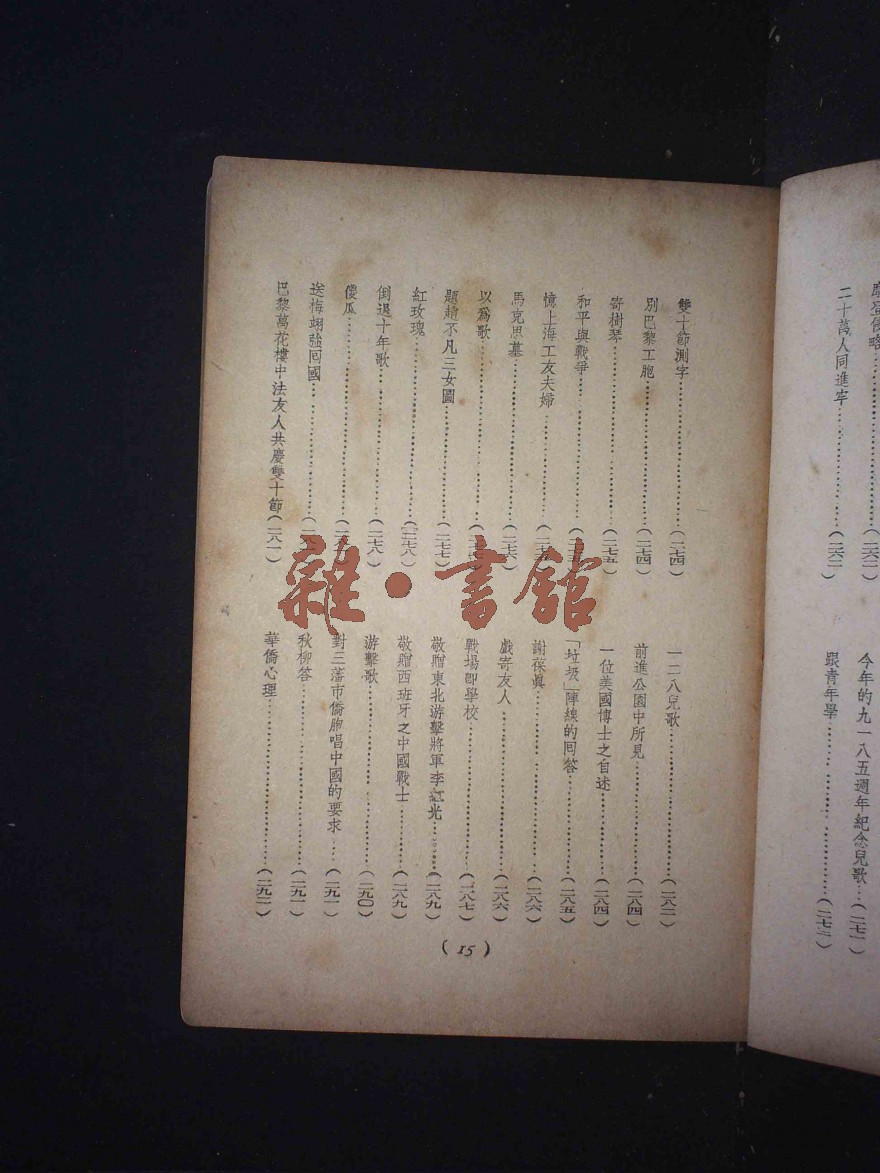 二十萬人同進牢……(二六二)
今年的九一八五週年紀念兒歌…(二七二)
跟青年學……(二七三)
雙十節測字……(二七四)
別巴黎工胞……(二七四)
寄樹琴……(二七五)
和平與戰爭……
憶上海工友夫婦……
馬克思墓……(二七六)
以爲歌……
題趙不凡三女圖……(二七七)
紅玫瑰……(二七八)
倒退十年歌……(二七八)
傻瓜……
送梅翊強回國……
巴黎萬花樓中法友人共慶雙十節(二八一)
一二八兒歌……(二八二)
前進公園中所見……(二八四)
一位美國博士之自述……(二八四)
「垃圾」陣線的回答……(二八五)
謝保眞……(二八六)
戲寄友人……(二八六)
戰場卽學校……(二八七)
敬贈東北游擊將軍李紅光……(二八九)
敬贈西班牙之中國戰士……(二八九)
游擊歌……(二九〇)
對三藩市僑胞唱中國的要求……(二九一)
秋柳答……(二九一)
華僑心理……(二九二)
(15)
雜·書館